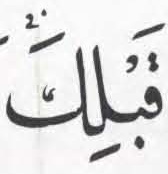 قَبْلِكَ